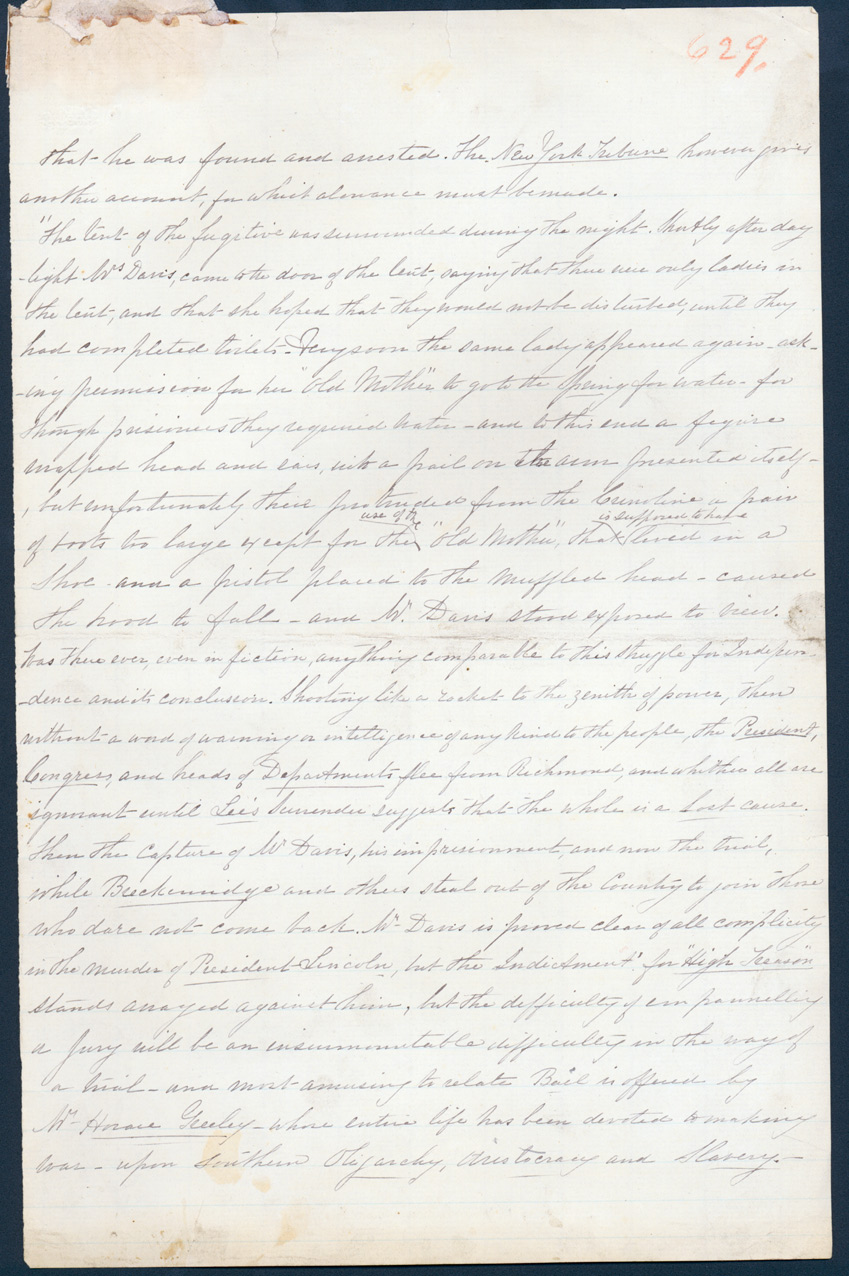 629.
that he was found and arrested. The New York Tribune however gives
another account, for which alowance must be made.
"The tent of the fugitive was surrounded during the night. Shortly after day
-light Mrs Davis, came to the door of the tent, saying that there were only ladies in
the tent, and that she hoped that they would not be disturbed, until they
had completed toilets - Very soon the same lady appeared again - ask-
-ing permission for her "Old Mother" to go to the Spring for water - for
though prisioners they required water - and to this end a figure
wrapped head and ears, with a pail on the arm presented itself -
, but unfortunately there protruded from the Crinoline a pair
use of the is supposed to have
of boots too large except for the "Old Mother", that lived in a
Shoe - and a pistol placed to the muffled head - caused
the hood to fall - and Mr. Davis stood exposed to view.
Was there ever, even in fiction, anything comparable to this struggle for Indepen-
-dence and its conclusion. Shooting like a rocket to the zenith of power, then
without a word of warning or intelligence of any kind to the people, the President,
Congress, and heads of Departments flee from Richmond, and whither all are
ignorant until Lee's Surrender suggests that the whole is a Lost cause.
Then the Capture of Mr Davis, his imprisionment, and now the trial,
while Breckenridge and others steal out of the Country to join those
who dare not come back. Mr Davis is proved clear of all complicity
in the murder of President Lincoln, but the Indictment for "High Treason"
stands arrayed against him, but the difficulty of em pannelling
a Jury will be an insurmountable difficulty in the way of
a trial - and most amusing to relate Bail is offered by
Mr Horace Greeley - whose entire life has been devoted to making
war - upon Southern Oligarchy, Aristocracy and Slavery. -